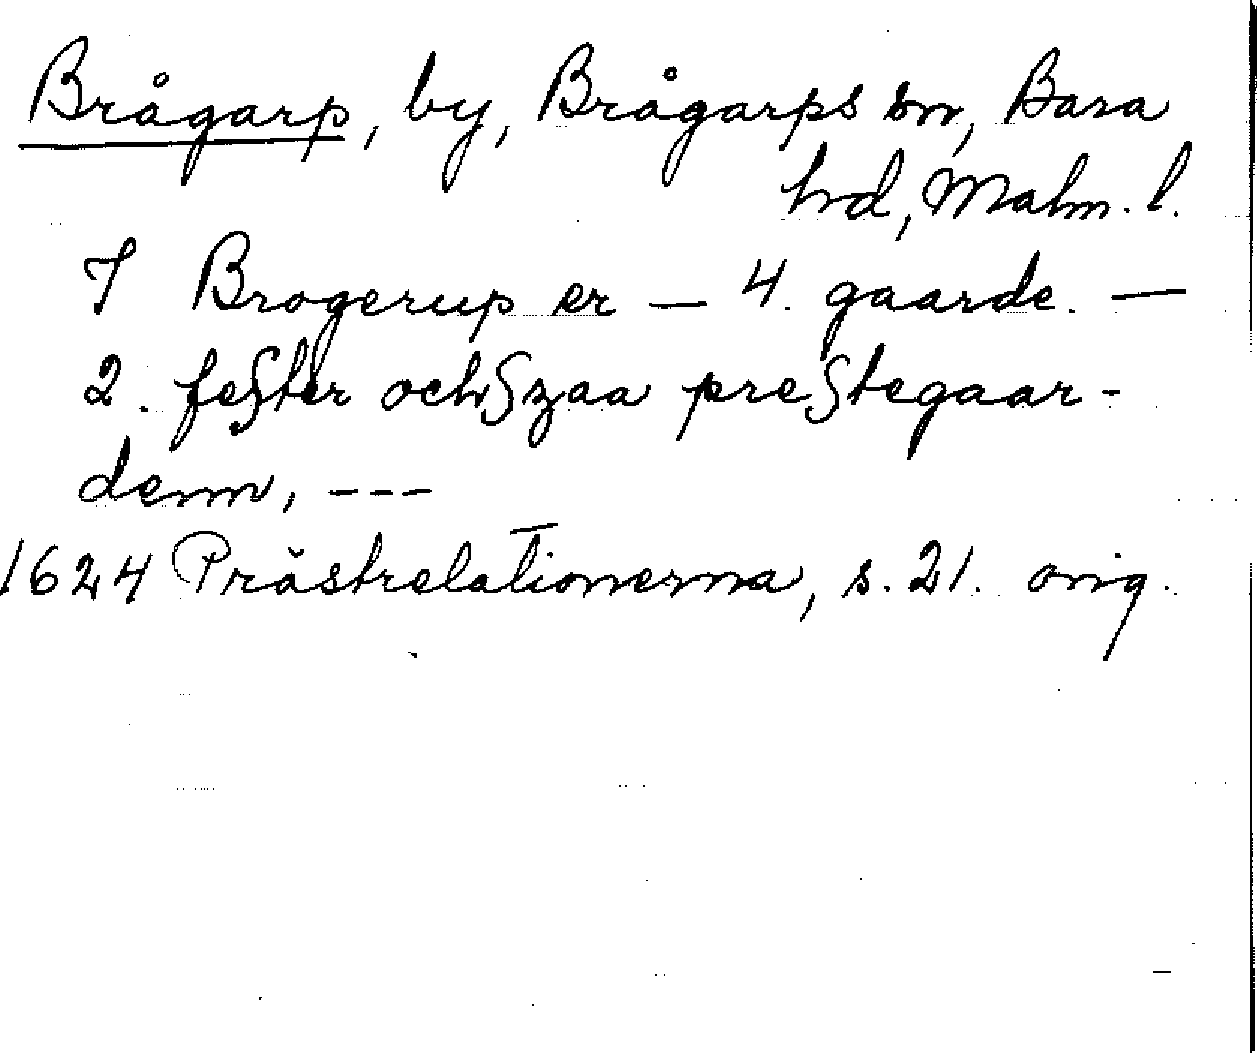 Brågarp, by, Brågarps sn, Bara
hd, Malm. l.
I Brogerup er — 4. gaarde. —
2. feſter ochſzaa preſtegaar-
denn, ---
1624 Prästrelationerna, s. 21. orig.